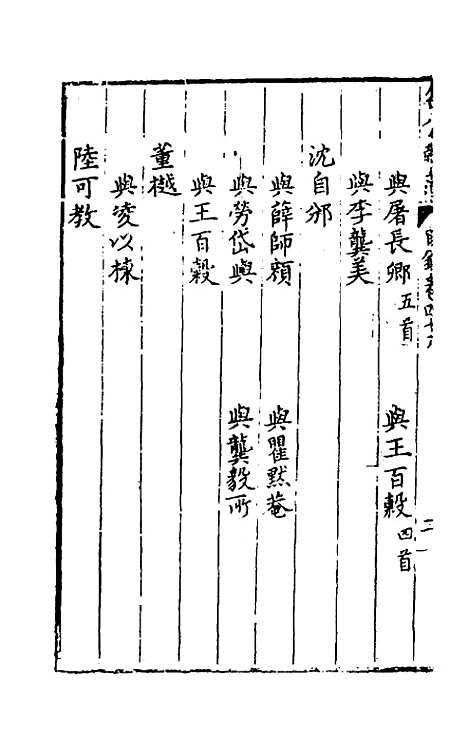 目錄卷四十六
與屠長卿五首 與王百穀四首
與李龔美
沈自邠
與薛師顏 與瞿默菴
與勞岱輿 與龔毅所
與王百穀
董樾
與凌以棟
陸可教